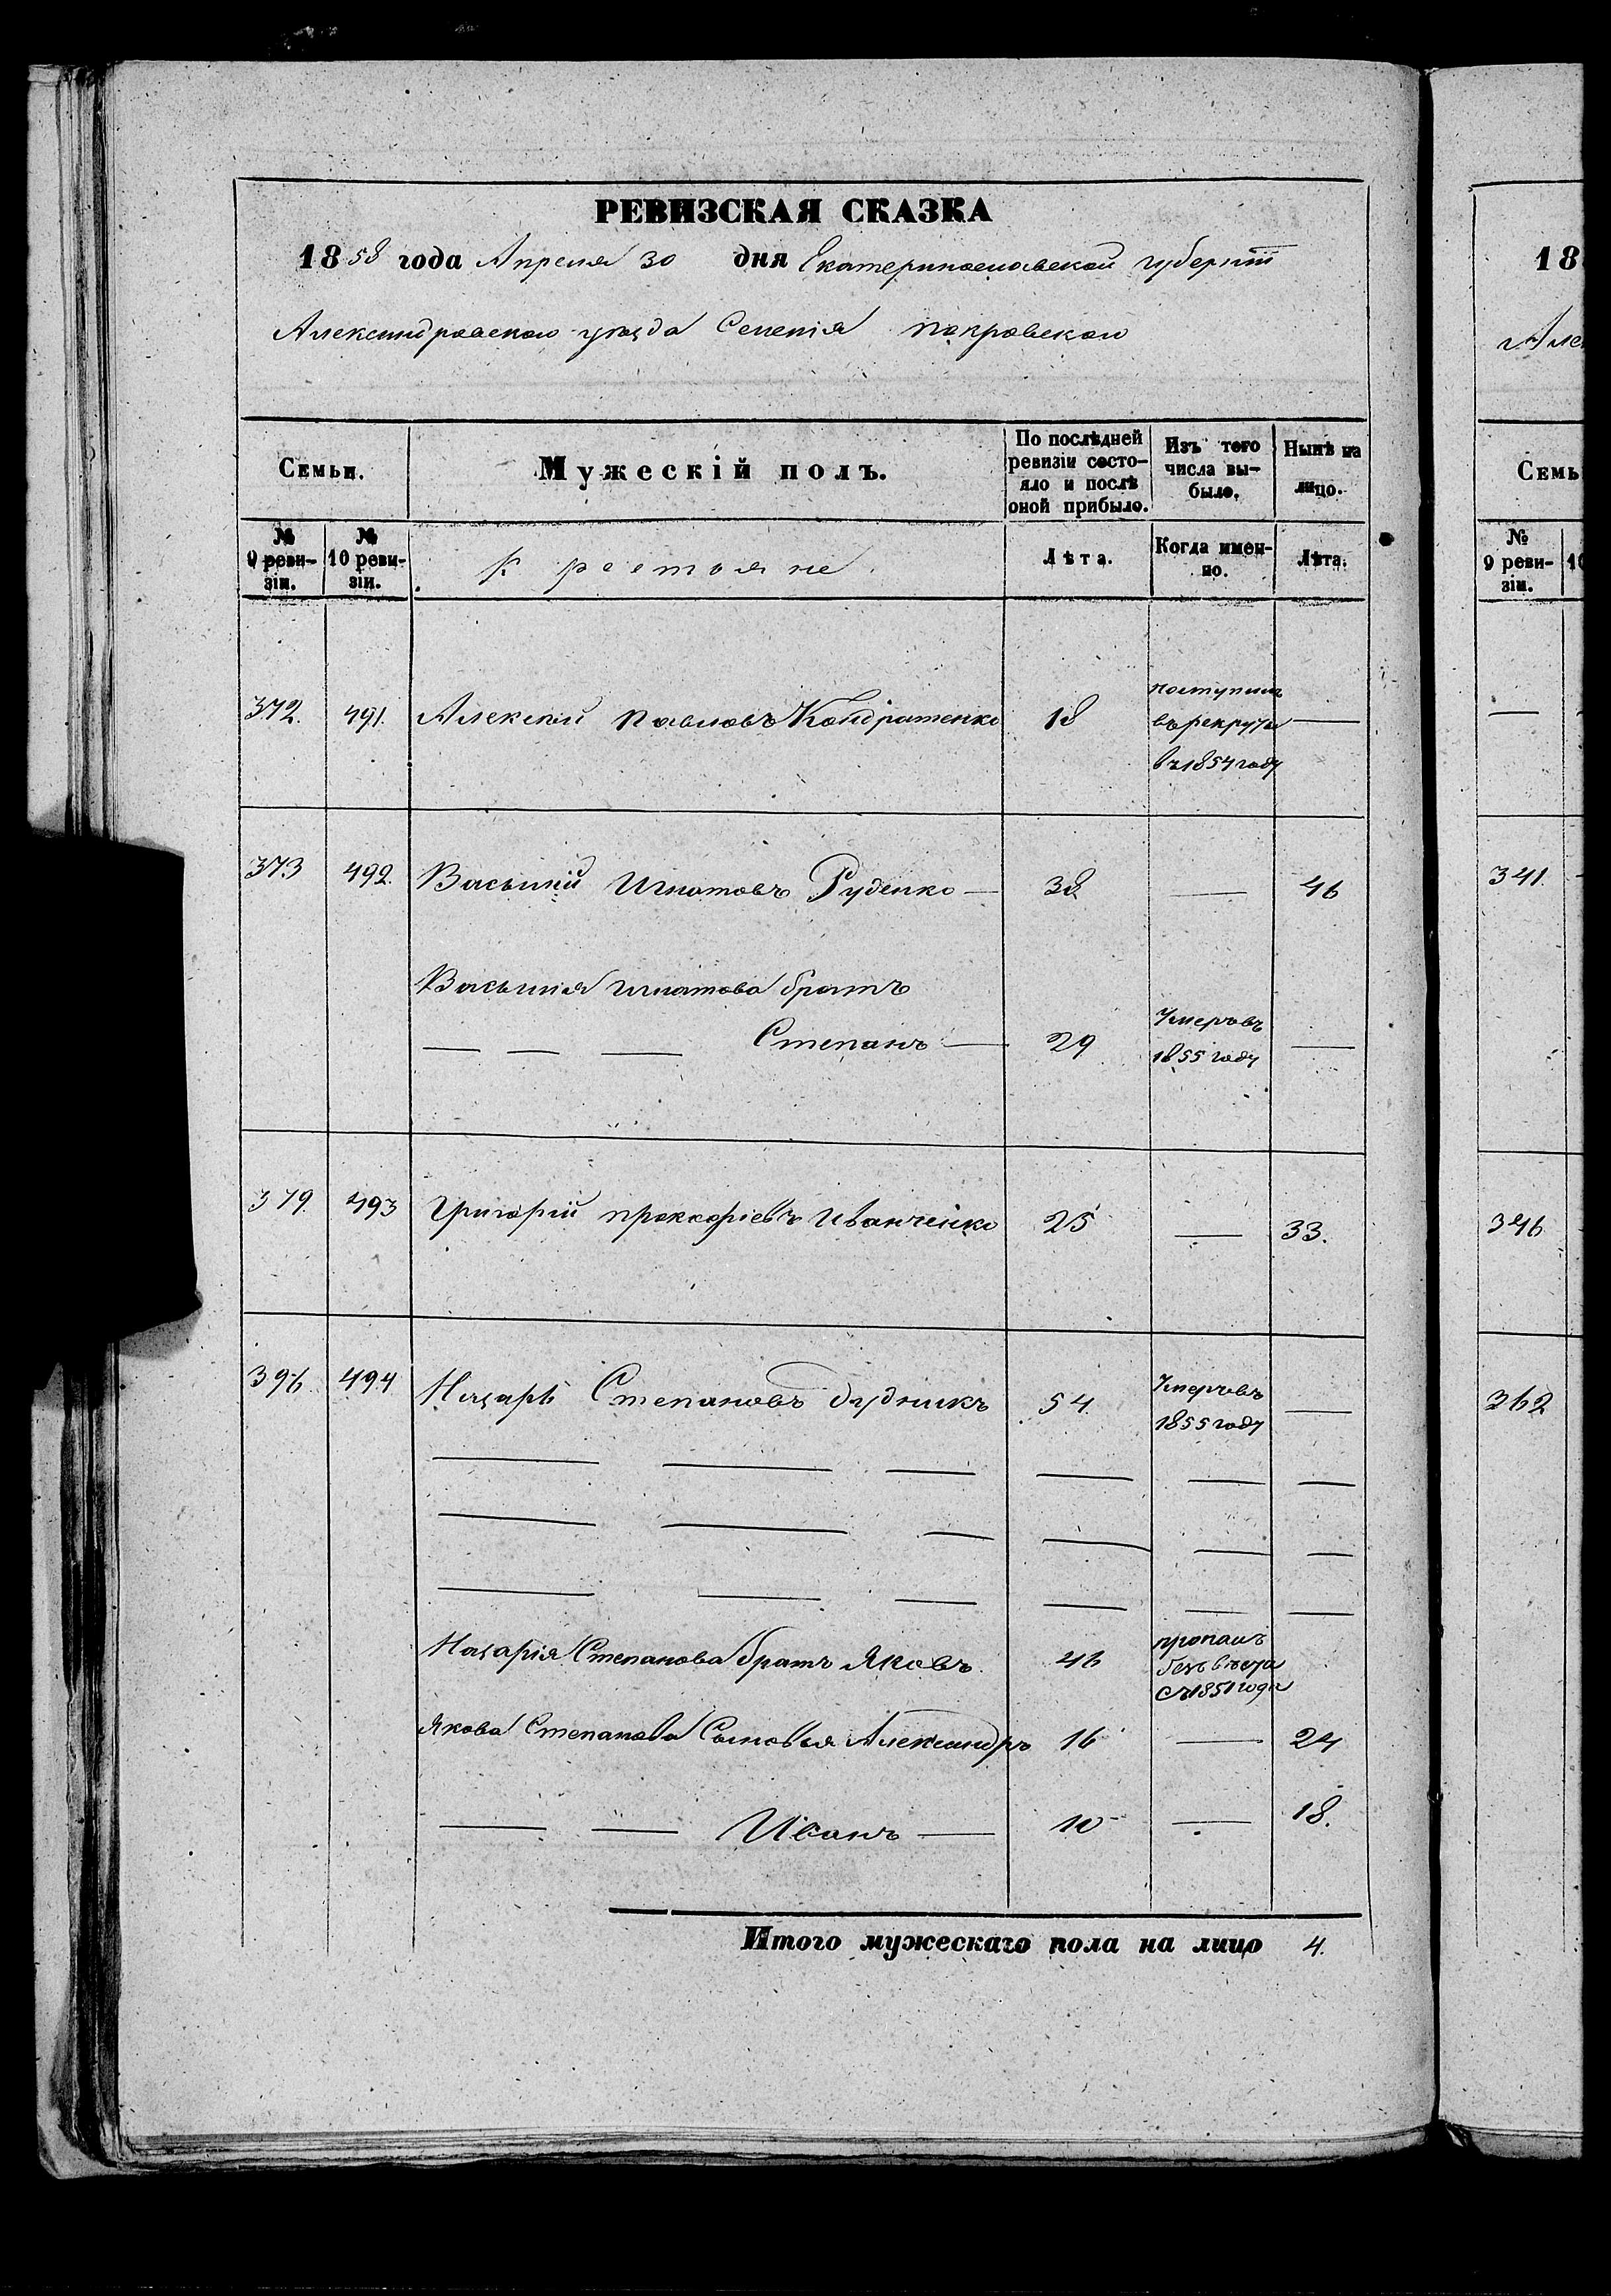 РЕВИЗСКАЯ СКАЗКА
1858 года Апреля 30 дня Екатеринославской губерніи
Александровскаго уѣзда Селенія покровскаго
Семьи.
Мужескій полъ.
По послѣдней ревизіи состо-
яло и послѣ
оной прибыло.
Изъ того
числа вы-
было.
Нынѣ на
лицо.
№
9 реви-
зіи.
№
10 реви-
зіи.
крестьяне.
Лѣта.
Когда имен-
но.
Лѣта.
372. 491. Алексѣй павловъ Кондратенко 18
поступилъ
въ рекруты
въ 1854 году
373 492. Василий Игнатовъ Руденко — 38 — 46
Василия игнатова братъ
Степанъ — 29
Умеръ въ
1855 году
379. 493 Григорій прокофіевъ Иванченко 25 — 33.
396. 494 Назарѣ Степановъ дудникъ 54.
Умеръ въ
1855 году
Назарія Степанова братъ Яковъ. 46
пропалъ
безъ вѣсти
съ 1851 года
Якова Степанова Сыновья Александръ 16 — 24
Иванъ — 10 — 18.
Итого мужескаго пола на лицо 4.
18
Але
Семь
№
9 реви-
зіи.
10
341.
346
362